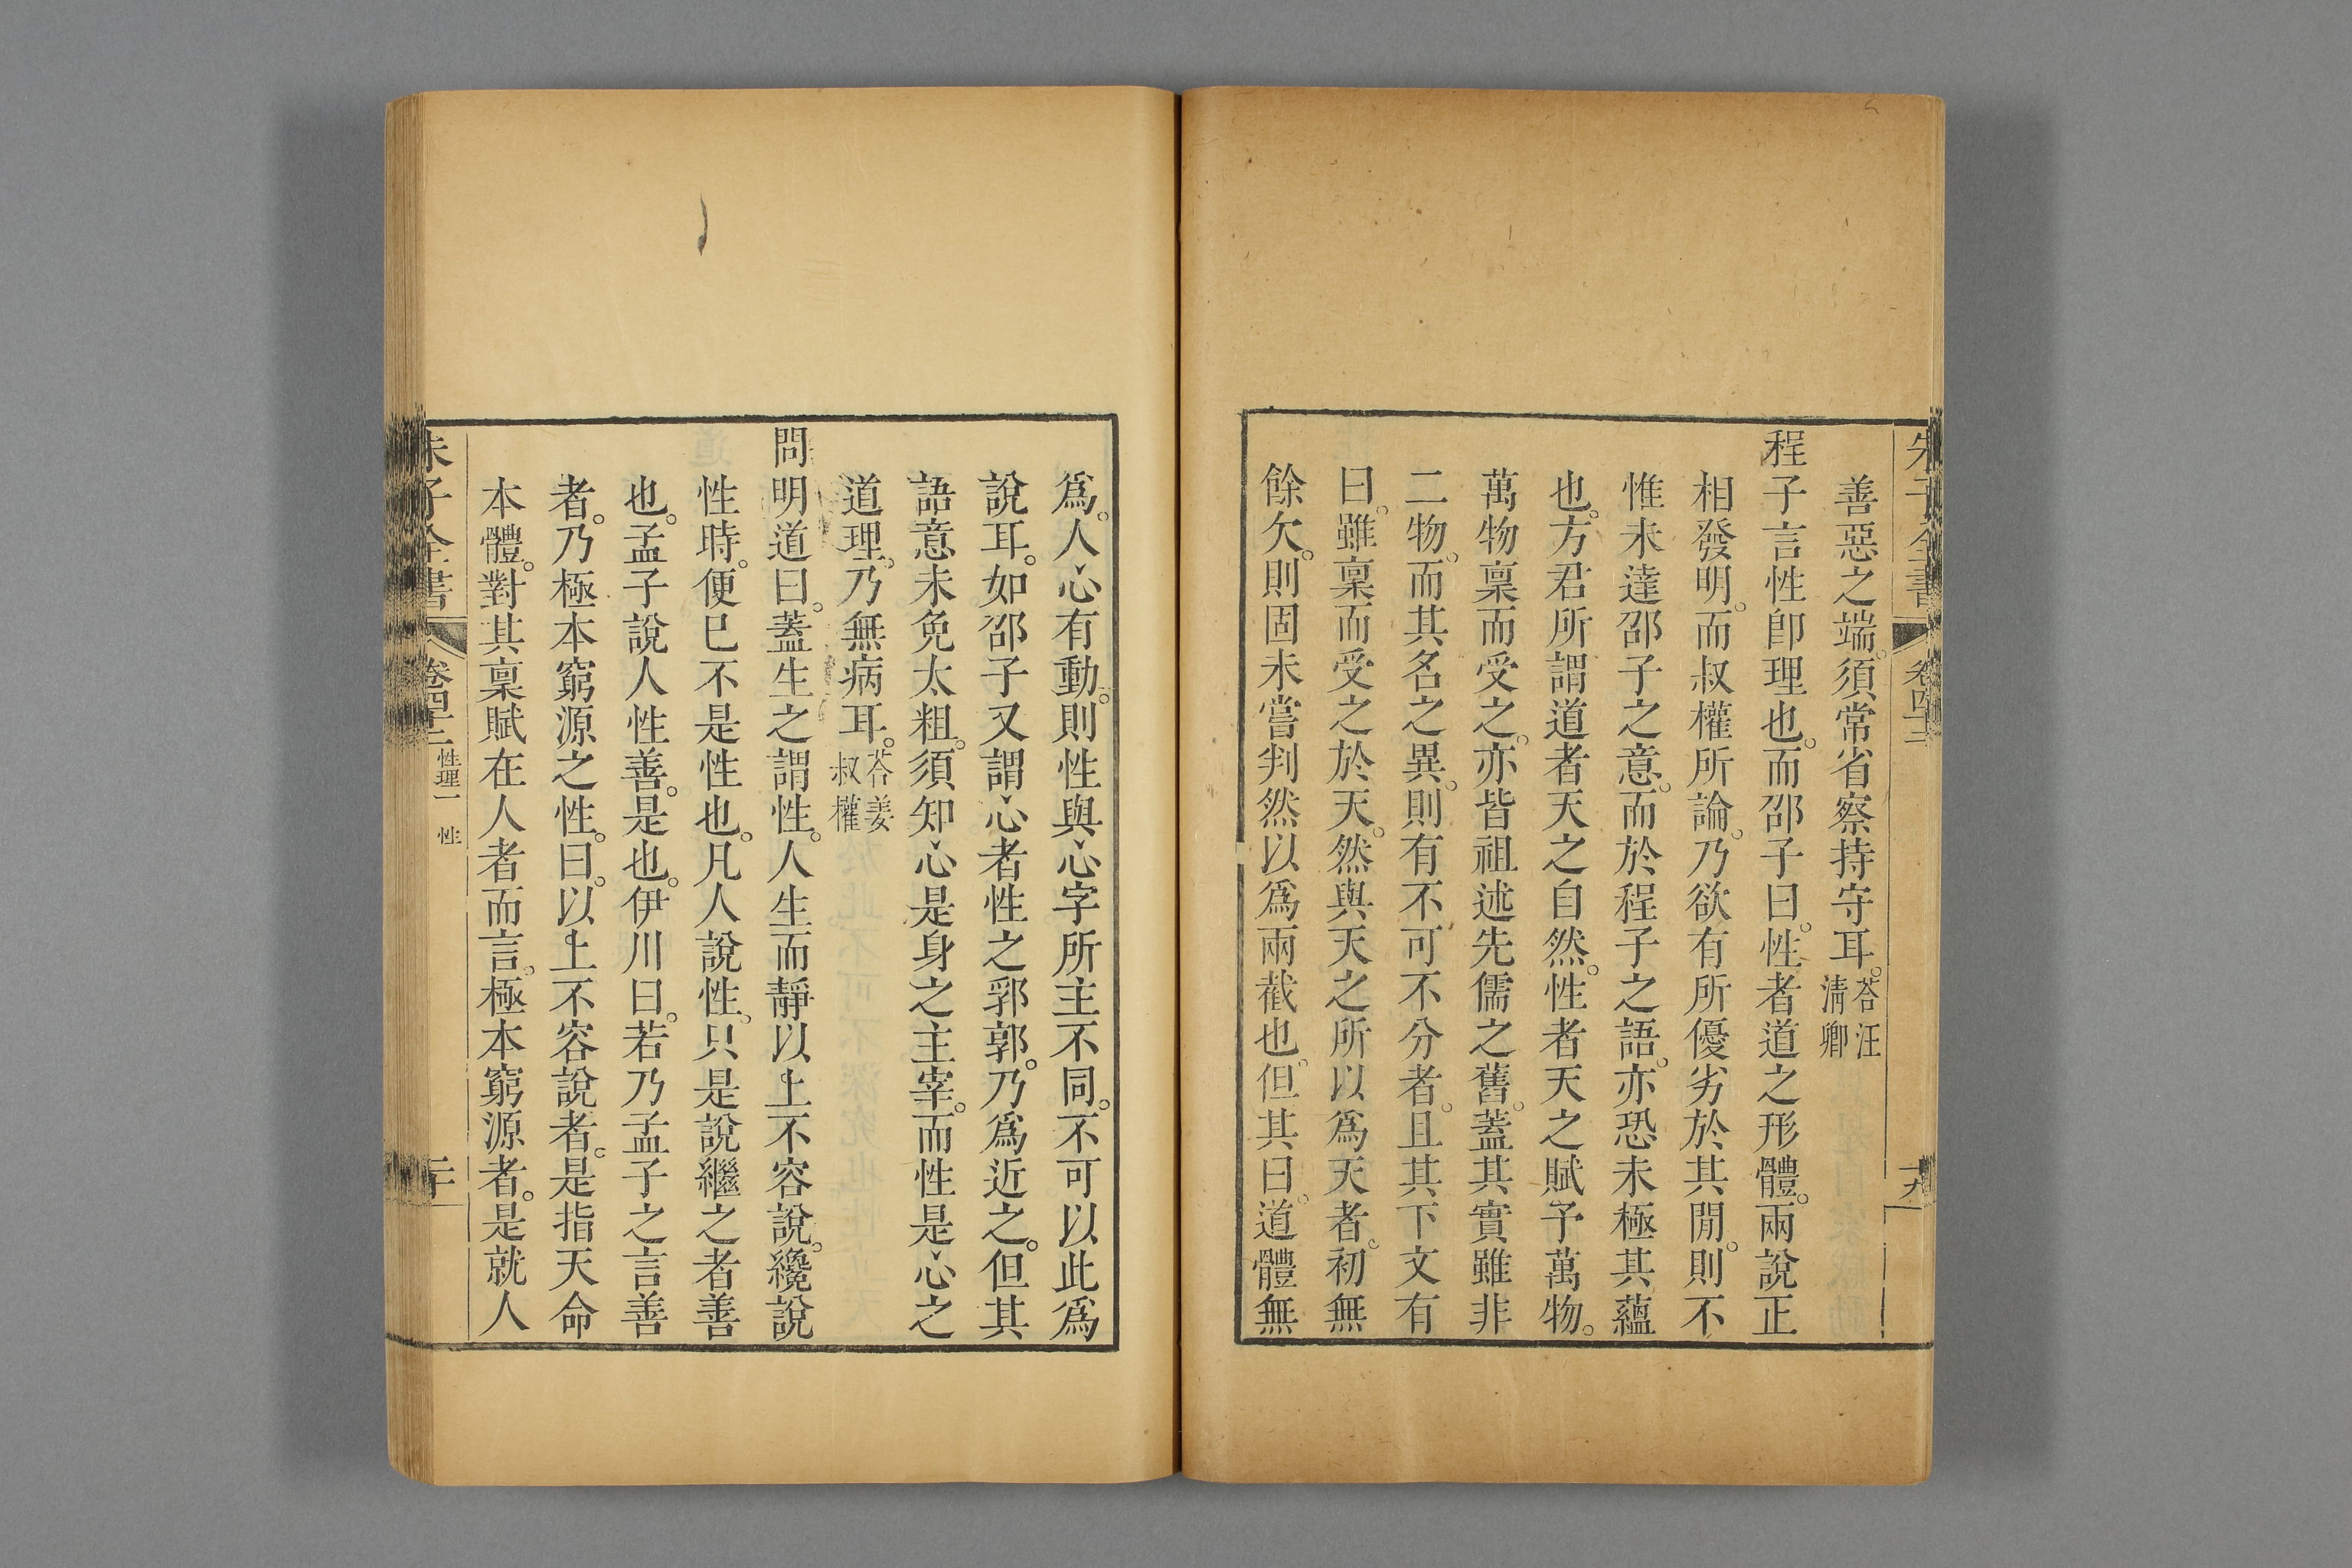 朱子全書 卷四十二 十九
善惡之端。須常省察持守耳。答汪清卿
程子言性卽理也。而邵子曰。性者道之形體。兩說正
相發明。而叔權所論。乃欲有所優劣於其閒。則不
惟未達邵子之意。而於程子之語。亦恐未極其蘊
也。方君所謂道者天之自然。性者天之賦予萬物。
萬物稟而受之。亦皆祖述先儒之舊。蓋其實雖非
二物。而其名之異。則有不可不分者。且其下文有
曰。雖稟而受之於天。然與天之所以爲天者。初無
餘欠。則固未嘗判然以爲兩截也。但其曰。道體無
爲。人心有動。則性與心字所主不同。不可以此爲
說耳。如邵子又謂心者性之郛郭。乃爲近之。但其
語意未免太粗。須知心是身之主宰。而性是心之
道理。乃無病耳。答姜叔權
問明道曰。蓋生之謂性。人生而靜以上不容說。纔說
性時。便已不是性也。凡人說性。只是說繼之者善
也。孟子說人性善。是也。伊川曰。若乃孟子之言善
者。乃極本窮源之性。曰。以上不容說者。是指天命
本體。對其稟賦在人者而言。極本窮源者。是就人
朱子全書 卷四十二 性理一 性 二十